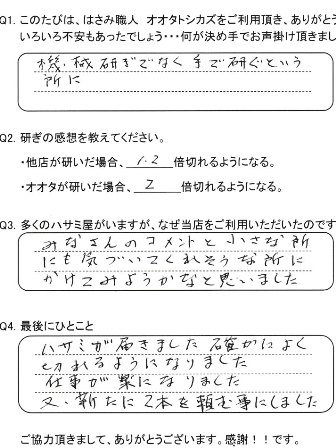 Q1. このたびは、はさみ職人 オオタトシカズをご利用頂き、ありがとう
いろいろ不安もあったでしょう・・・何が決め手でお声掛け頂きまし
機械研ぎでなく手で研ぐという
所に
Q2. 研ぎの感想を教えてください。
・他店が研いだ場合、1.2倍切れるようになる。
・オオタが研いだ場合、2倍切れるようになる。
Q3. 多くのハサミ屋がいますが、なぜ当店をご利用いただいたのです
みなさんのコメントと小さな所
にも気づいてくれそうな所に
かけてみようかなと思いました
Q4. 最後にひとこと
ハサミが届きました 確かによく
切れるようになりました
仕事が楽になりました
又、新たに2本を頼む事にしました
ご協力頂きまして、ありがとうございます。感謝!!です。